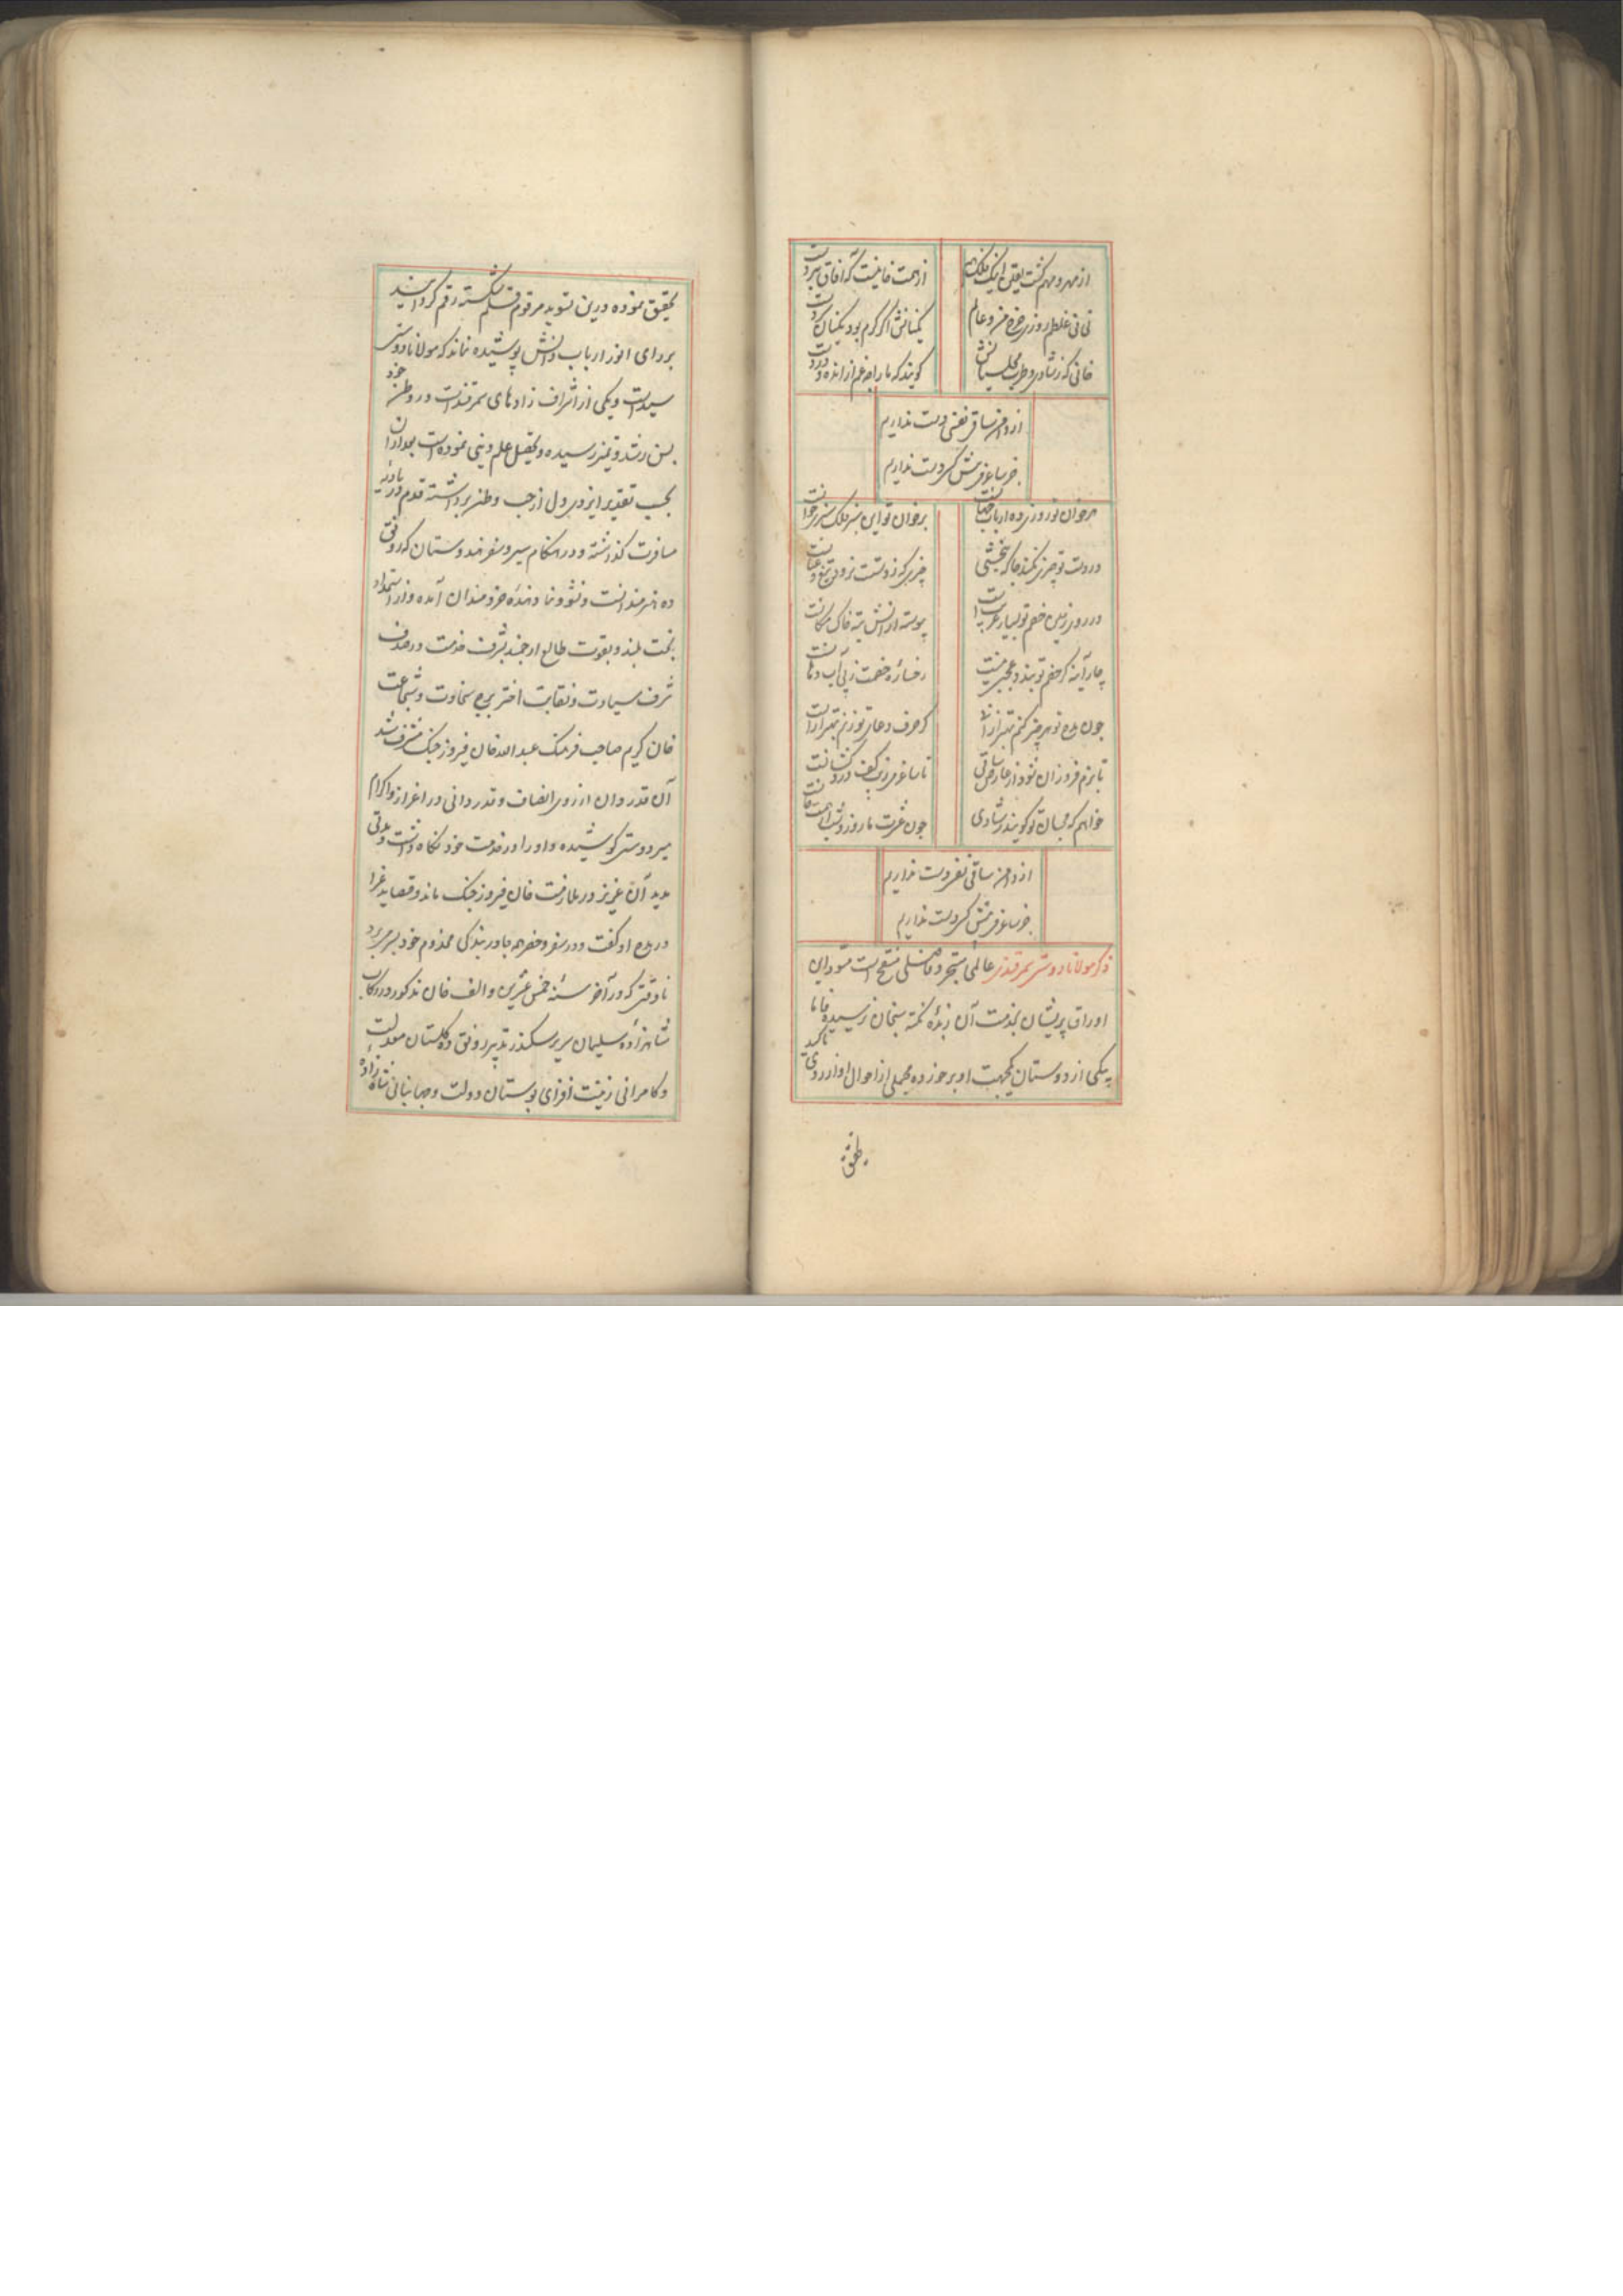 از مهر و مهم گشت یقین اینکه فلک هم
از همت خانیست که آفاق
نی نی غلطم روزی خورد من و عالم
خانی که ز شادی و طرب مجلسیانش
گویند که ما را چه غم از انده
از دامن ساقی نفسی دست نداریم
جز ساغر می پیش کسی دست نداریم
بر خوان تو روزی ده ارباب
بر خوان تو این سبز فلک سبزی
در دست تو چیزی نکند جا که نبخشی
چیزی که ز دستت نرود تیغ و
در روز زمین خصم تو بسیار
پیوسته از آنش ته خاک
چار آینه گر خصم تو بندد عجبی نیست
رخساره خصمت ز پی آب
چون مدح تو هر چیز کنم بهتر از
که حرف دعای تو زنم بهتر از
تا بزم فروزان شود از عارض ساقی
تا ساغر می زیب کف
خواهم که محبان تو گویند ز شادی
چون عشرت ما روز و شب از همت
از دامن ساقی نفسی دست نداریم
جز ساغر می پیش کسی دست نداریم
ذکر مولانا دوستی سمرقندی عالمی متبحر و فاضلی است مسود این
اوراق پریشان بخدمت آن زبده نکته سنجان نرسیده فاما
به یکی از دوستان یکجهت او برخورده مجملی از احوال او از روی تاکید
تحقیق
تحقیق نموده درین تسوید مرقوم قلم شکسته رقم گردانید
بر رای انور ارباب دانش پوشیده نماند که مولانا دوستی
سید است و یکی از اشراف زادهای سمرقند است در وطن خود
بسن رشد و تمیز رسیده و تحصیل علم دینی نموده است بعد از آن
بحسب تقدیر ایزدی دل از حب وطن برداشته قدم در بادیه
مسافرت گذاشته و در هنگام سیر و سفر هندوستان که رونق
ده هنرمندانست و نشو و نما دهنده خردمندان آمده و از استمداد
بخت بلند و بقوت طالع ارجمند بشرف خدمت در صدف
شرف سیادت و نقابت اختر برج سخاوت و شجاعت
خان کریم صاحب فرهنگ عبد الله خان فیروز جنگ مشرف شد
آن قدردان از روی انصاف و قدردانی در اعزاز و اکرام
میر دوستی کوشیده و او را در خدمت خود نگاه داشت و مدتی
مدید آن عزیز در ملازمت خان فیروز جنگ ماند و قصاید غرا
در مدح او گفت و در سفر و حضر همه جا در بندگی مخدوم خود بسر میبرد
تا وقتی که در آخر سنه خمس عشرین و الف خان مذکور در رکاب
شاهزاده سلیمان سریر سکندر تدبیر رونق ده گلستان معدلت
و کامرانی زینت افزای بوستان دولت و جهانبانی شاهزاده